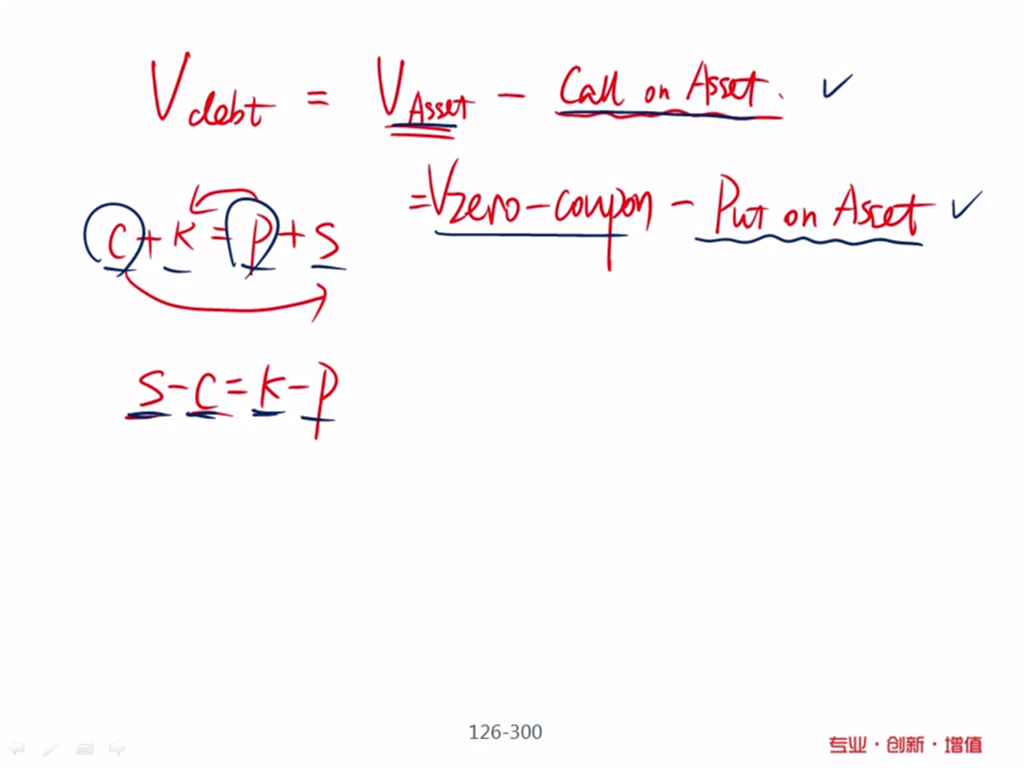 V debt = V Asset - Call on Asset. ✓
= V zero-coupon - Put on Asset ✓
C + K = P + S
S - C = K - P
126-300
专业·创新·增值